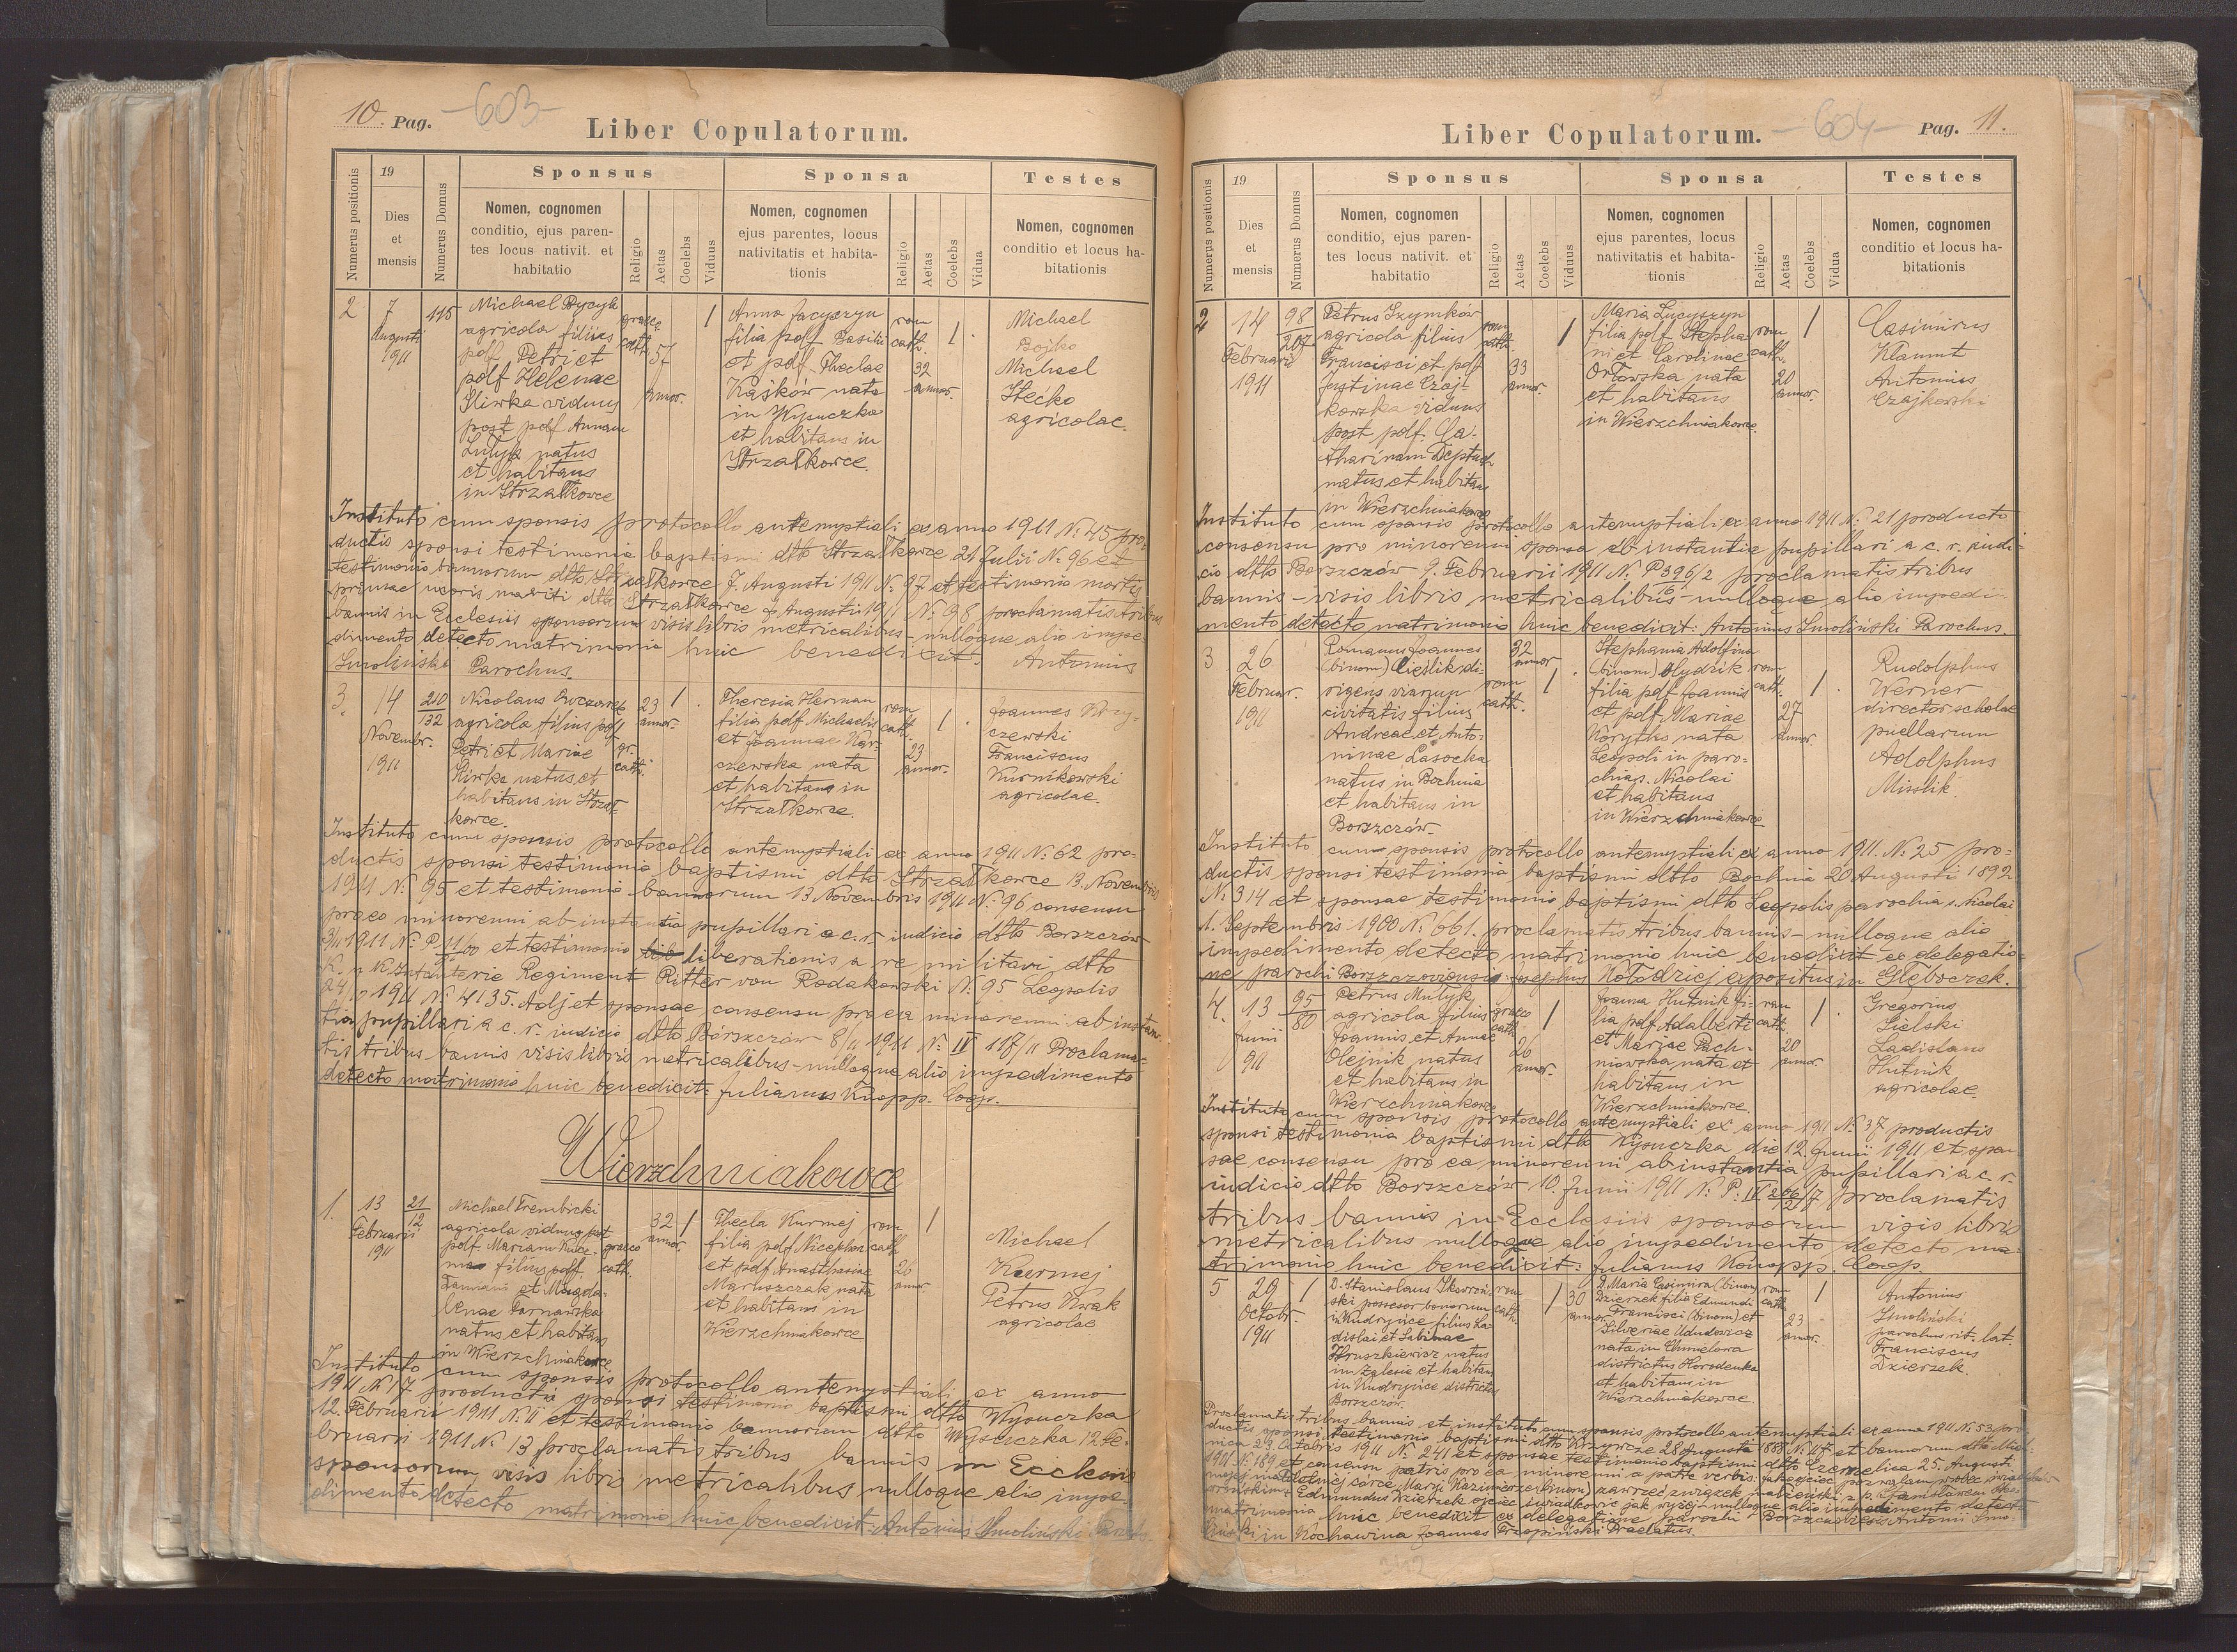 10. Pag. -603-
Liber Copulatorum.
Numerus positionis
19
Dies
et
mensis
Numerus Domus
Sponsus
Nomen, cognomen
conditio, ejus paren-
tes locus nativit. et
habitatio
Religio
Aetas
Coelebs
Viduus
Sponsa
Nomen, cognomen
ejus parentes, locus
nativitatis et habita-
tionis
Religio
Aetas
Coelebs
Vidua
Testes
Nomen, cognomen
conditio et locus ha-
bitationis
2
7
Augusti
1911
115
Michael Bycyk
agricola filius
pdf Petri et
pdf Helenae
Sliwka viduus
post pdf Annam
natus
et habitans
in Strzałkowce
graeco
cath.
57
annor.
1
Anna Jacyszyn
filia pdf Basilii
et pdf Theclae
Kaśków nata
in Wysuczka
et habitans in
Strzałkowce.
rom
cath.
32
annor.
1.
Michael
Bojko
Michael
Stećko
agricolae.
Instituto cum sponsis protocollo antenuptiali ex anno 1911 N. 45 pro-
ductis sponsi testimonio baptismi dtto Strzałkowce 21 Julii N. 96 et
testimonio bannorum dtto Strzałkowce 7. Augusti 1911 N. 97 et testimonio mortis
primae uxoris mariti dtto Strzałkowce Augusti 1911 N. 98 proclamatis tribus
bannis in Ecclesiis sponsorum visis libris metricalibus - nulloque alio impe-
dimento detecto matrimonio huic benedixit. Antonius
Smoliński Parochus.
3.
14
Novembr.
1911
210
132
Nicolaus Owczarek
agricola filius pdf
Petri et Mariae
Sliwka natus et
habitans in Strzał-
kowce.
gr.
cath.
23
annor.
1.
Theresia Herman
filia pdf Michaelis
et Joannae Kar-
czewska nata
et habitans in
Strzałkowce.
rom
cath.
23
annor.
1.
Joannes
czewski
Franciscus
Kurnikowski
agricolae.
Instituto cum sponsis protocollo antenuptiali ex anno 1911 N. 62 pro-
ductis sponsi testimonio baptismi dtto Strzałkowce 13. Novembris
1911 N. 95 et testimonio bannorum 13 Novembris 1911 N. 96 consensu
pro eo minorenni ab instantia pupillari a c. r. iudicio dtto Borszczów
3/11 1911 N. P 11/00 et testimonio liberationis a re militari dtto
K. u K. Infanterie Regiment Ritter von Rodakowski N. 95 Leopolis
1911 N. 4135. Adj et sponsae consensu pro ea minorenni ab instan-
tia pupillari a c. r. iudicio dtto Borszczów 8/11 1911 N. IV 117/11 Proclama-
tis tribus bannis visis libris metricalibus - nulloque alio impedimento
detecto matrimonio huic benedixit: Julianus Knopp. Coop.
Wierzchniakowce
1.
13
Februarii
1911
21
12
Michael Trembicki
agricola viduus post
pdf Mariam
filius pdf
Damiani et Magda-
lenae Tarnawska
natus et habitans
in Wierzchniakowce.
graeco
cath.
32
annor.
1
Thecla Kurmej
filia pdf Nicephori
et pdf Anasthasiae
Maruszczak nata
et habitans in
Wierzchniakowce
rom
cath
26
annor
1
Michael
Kurmej
Petrus Kwak
agricolae
Instituto cum sponsis protocollo antenuptiali ex anno
1911 N. 17 productis sponsi testimonio baptismi dtto Wysuczka
12. Februarii 1911 N. 11 et testimonio bannorum dtto Wysuczka 12 Fe-
bruarii 1911 N. 13 proclamatis tribus bannis in Ecclesiis
sponsorum visis libris metricalibus nulloque alio impe-
dimento detecto matrimonio huic benedixit: Antonius Smoliński
Liber Copulatorum. -604- Pag. 11.
Numerus positionis
19
Dies
et
mensis
Numerus Domus
Sponsus
Nomen, cognomen
conditio, ejus paren-
tes locus nativit. et
habitatio
Religio
Aetas
Coelebs
Viduus
Sponsa
Nomen, cognomen
ejus parentes, locus
nativitatis et habita-
tionis
Religio
Aetas
Coelebs
Vidua
Testes
Nomen, cognomen
conditio et locus ha-
bitationis
2
14
Februarii
1911
98
207
Petrus Szymków
agricola filius
Francisci et pdf
Justinae Czaj-
kowska viduus
post pdf. Ca-
tharinam Deptuch
natus et habitans
in Wierzchniakowce
rom
cath.
33
annor.
1
Maria Łucyszyn
filia pdf Stepha-
ni et Carolinae
Orłowska nata
et habitans
in Wierzchniakowce.
rom
cath.
20
annor.
1
Casimirus
Klamut
Antonius
Czajkowski
Instituto cum sponsis protocollo antenuptiali ex anno 1911 N. 21 producto
consensu pro minorenni sponsa ab instantia pupillari a c. r. iudi-
cio dtto Borszczów 9. Februarii 1911 N. P 396/2 proclamatis tribus
bannis - visis libris metricalibus - nulloque alio impedi-
mento detecto matrimonio huic benedixit: Antonius Smoliński Parochus.
3
26
Februar.
1911
Romanus Joannes
(binom) Cieślik di-
rigens viarum
civitatis filius
Andreae et Anto-
ninae Lasocka
natus in Bochnia
et habitans in
Borszczów
32
annor
rom
cath.
1.
Stephania Adolfina
(binom) Hydzik
filia pdf Joannis
et pdf Mariae
Korytko nata
Leopoli in paro-
chia s. Nicolai
et habitans
in Wierzchniakowce
rom
cath.
27
annor.
1.
Rudolphus
Werner
director scholae
puellarum
Adolphus
Misslik.
Instituto cum sponsis protocollo antenuptiali ex anno 1911. N. 25 pro-
ductis sponsi testimonio baptismi dtto Bochnia 20 Augusti 1892
N. 314 et sponsae testimonio baptismi dtto Leopolis parochia s. Nicolai
1. Septembris 1900 N. 661. proclamatis tribus bannis - nulloque alio
impedimento detecto matrimonio huic benedixit ex delegatio-
ne parochi Borszczoviensis Josephus Kołodziej expositus in Głęboczek.
4.
13
Junii
911
95
80
Petrus Mulyk
agricola filius
Joannis et Annae
Olejnik natus
et habitans in
Wierzchniakowce
graeco
cath.
26
annor.
1
Joanna Hutnik fi-
lia pdf Adalberti
et Mariae Pach-
niowska nata et
habitans in
Wierzchniakowce.
rom
cath.
20
annor.
1.
Gregorius
Sielski
Ladislaus
Hutnik
agricolae
Instituto cum sponsis protocollo antenuptiali ex anno 1911 N. 37 productis
sponsi testimonio baptismi dtto Wysuczka die 12 Junii 1911 et spon-
sae consensu pro ea minorenni ab instantia pupillari a c. r.
iudicio dtto Borszczów 10. Junii 1911 N. P. IV 206/7 proclamatis
tribus bannis in Ecclesiis sponsorum visis libris
metricalibus nulloque alio impedimento detecto ma-
trimonio huic benedixit: Julianus Knopp. Coop.
5
29
Octobr.
1911
1
D. Stanislaus Skowroń-
ski possesor bonorum
in Kudryńce filius La-
dislai et Sabinae
Hruszkiewicz natus
in Zalesie et habitans
in Kudryńce districtus
Borszczów.
rom
cath.
1
30
annor.
D. Maria Casimira (binom)
Dzierżek filia Edmundi
Francisci (binom) et
Silveriae Ududowicz
nata in Chmelowa
districtus Horodenka
et habitans in
Wierzchniakowce.
rom
cath.
23
annor.
1
Antonius
Smoliński
parochus rit. lat.
Franciscus
Dzierżek.
Proclamatis tribus bannis et instituto cum sponsis protocollo antenuptiali ex anno 1911 N. 53 pro-
ductis sponsi testimonio baptismi dtto Krzywcze 28 Augusta 1885 N. 117 et bannorum dtto Miel-
nica 23. Octobris 1911 N. 241 et sponsae testimonio baptismi dtto Czernelica 25. Augusti
1911 N. 189 et consensu patris pro ea minorenni a patre verbis: jako ojciec pozwalam wobec świadków
mojej małoletniej córce Maryi Kazimierze (binom) zawrzeć związek małżeński z p. Stanisławem Skow-
rońskim: Edmundus Dzierżek ojciec świadkowie jak wyżej - nulloque alio impedimento detecto
matrimonio huic benedixit ex delegatione parochi Borszczoviensis Antonii Smo-
lińskiin Kochawina Joannes Trzopiński Praelatus.